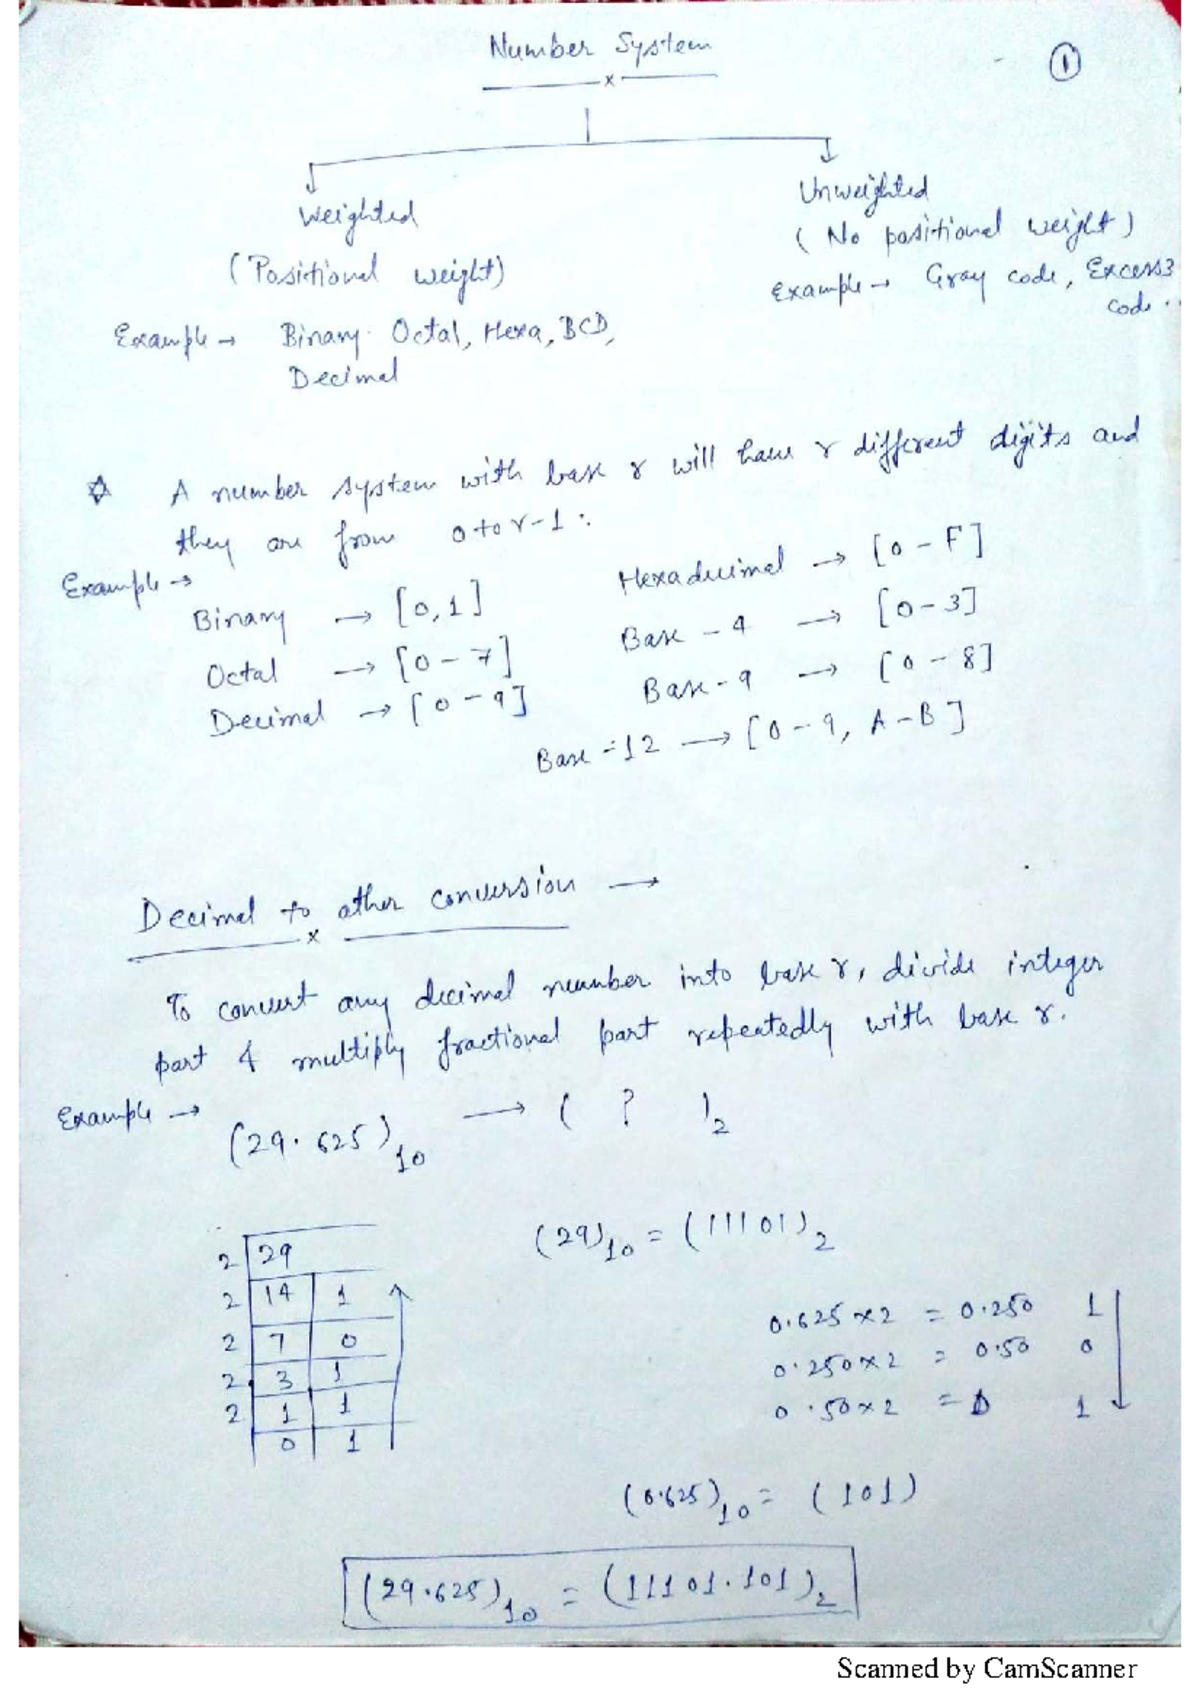 Number System
x
1
Weighted
(Positional weight)
Example → Binary Octal, Hexa, BCD,
Decimal
Unweighted
( No positional weight )
Example → Gray code, Excess3
code ..
A number system with base r will have r different digits and
they are from 0 to r-1 :
Example →
Binary → [0,1]
Octal → [0-7]
Decimal → [0-9]
Hexadecimal → [0-F]
Base-4 → [0-3]
Base-9 → [0-8]
Base=12 → [0-9, A-B]
Decimal to other conversion →
x
To convert any decimal number into base r, divide integer
part & multiply fractional part repeatedly with base r.
Example → (29.625)10 → ( ? )2
2 29
2 14 1
2 7 0
2 3 1
2 1 1
0 1
(29)10 = (11101)2
0.625×2 = 0.250 1
0.250×2 = 0.50 0
0.50×2 = 0 1
(0.625)10 = (101)
(29.625)10 = (11101.101)2
Scanned by CamScanner